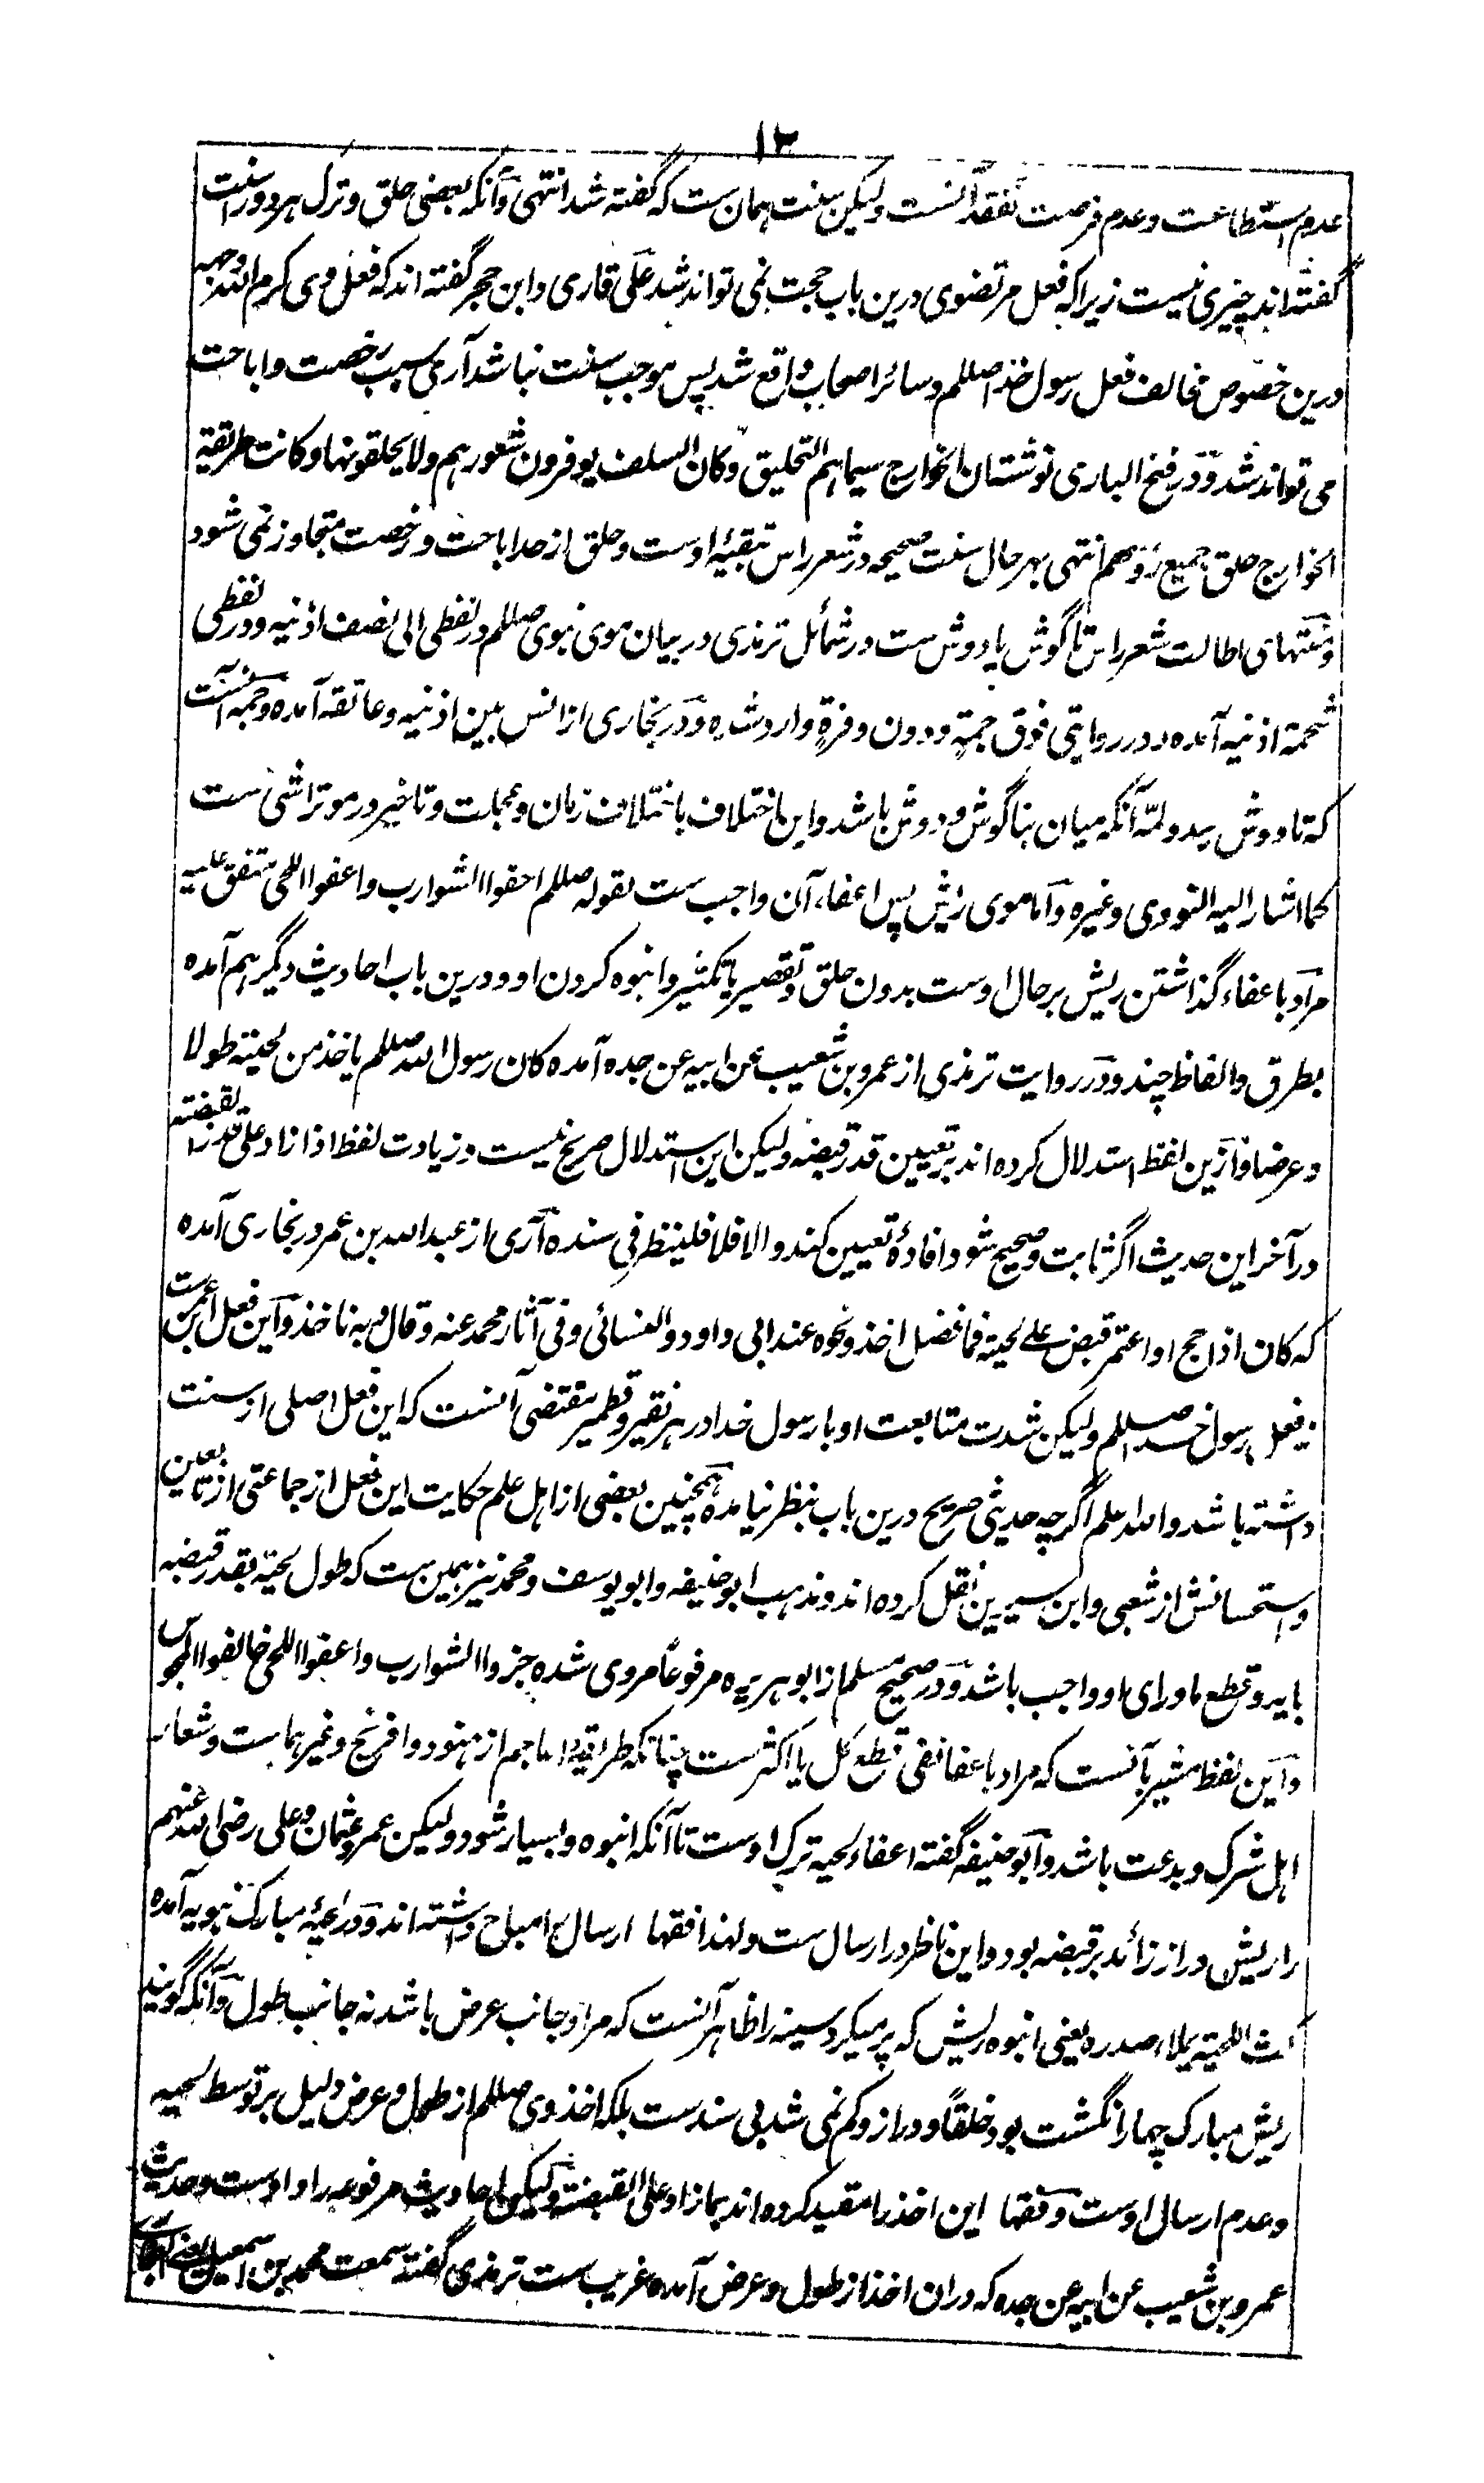 ۱۳
عدم استطاعت و عدم فرصت تفقد آنست ولیکن سنت همان ست که گفته شد انتهی و آنکه بعضی حلق و ترک هر دو را سنت
گفته اند چیزی نیست زیرا که فعل مرتضوی درین باب حجت نمی تواند شد علی قاری و ابن حجر گفته اند که فعل وی کرم الله وجهه
درین خصوص مخالف فعل رسول خدا صللم و سائر اصحاب واقع شد پس موجب سنت نباشد آری سبب رخصت و اباحت
می تواند شد و در فتح الباری نوشته ان الخوارج سیماهم التحلیق و کان السلف یوفرون شعورهم ولا یحلقونها و کانت طریقة
الخوارج حلق جمیع رؤسهم انتهی بهر حال سنت صحیحه در شعر راس تبقیهٔ اوست و حلق از حد اباحت و رخصت متجاوز نمی شود
و منتهای اطالت شعر راس تا گوش یا دوش ست و در شمائل ترمذی در بیان موی نبوی صللم در لفظی الی نصف اذنیه و در لفظی
شحمة اذنیه آمده و در روایتی فوق جمة و دون وفرة وارد شده و در بخاری از انس بین اذنیه و عاتقه آمده و جمه آنست
که تا دوش رسد و لمه آنکه میان بناگوش و دوش باشد و این اختلاف باختلاف زمان و عجلت و تاخیر در مو تراشی ست
کما اشار الیه النووی و غیره و اما موی ریش پس اعفاء آن واجب ست لقوله صللم احفوا الشوارب و اعفوا اللحی متفق علیه
مراد باعفاء گذاشتن ریش بر حال اوست بدون حلق و تقصیر یا تکثیر و انبوه کردن او و درین باب احادیث دیگر هم آمده
بطرق و الفاظ چند و در روایت ترمذی از عمرو بن شعیب عن ابیه عن جده آمده کان رسول الله صللم یاخذ من لحیته طولا
و عرضا و ازین لفظ استدلال کرده اند بر تعیین قدر قبضه ولیکن این استدلال صریح نیست و زیادت لفظ اذا زاد علی قدر القبضته
در آخر این حدیث اگر ثابت و صحیح شود افادهٔ تعیین کند و الا فلا فلینظر فی سنده آری از عبد الله بن عمر در بخاری آمده
که کان اذا حج او اعتمر قبض علی لحیته فما فضل اخذ و نحوه عند ابی داود و النسائی و فی آثار محمد عنه و قال و به ناخذ و این فعل ابن عمرست
نه فعل رسول خدا صللم ولیکن شدت متابعت او با رسول خدا در هر نقیر و قطمیر مقتضی آنست که این فعل اصلی از سنت
داشته باشد و الله اعلم اگرچه حدیثی صریح درین باب بنظر نیامده همچنین بعضی از اهل علم حکایت این فعل از جماعتی از تابعین
و استحسانش از شعبی و ابن سیرین نقل کرده اند و مذهب ابو حنیفه و ابو یوسف و محمد نیز همین ست که طول لحیه بقدر قبضه
باید و قطع ماورای او واجب باشد و در صحیح مسلم از ابو هریره مرفوعاً مروی شده جزوا الشوارب و اعفوا اللحی خالفوا المجوس
و این لفظ مشیر بآنست که مراد باعفا نفی قطع کل یا اکثرست چنانکه طریقهٔ اعاجم از هنود و افرنج و غیرهما ست و شعار
اهل شرک و بدعت باشد و ابو حنیفه گفته اعفاء لحیه ترک اوست تا آنکه انبوه و بسیار شود ولیکن عمر و عثمان و علی رضی الله عنهم
را ریش دراز زائد بر قبضه بود و این ناظر در ارسال ست و لهذا فقها ارسال را مباح داشته اند و در لحیهٔ مبارک نبویه آمده
کث اللحیة یملاء صدره یعنی انبوه ریش که پر میکرد سینه را ظاهر آنست که مراد جانب عرض باشد نه جانب طول و آنکه گویند
ریش مبارک چهار انگشت بود خلقاً و دراز و کم نمی شد بی سندست بلکه اخذ وی صللم از طول و عرض دلیل بر توسط لحیه
و عدم ارسال اوست و فقها این اخذ را مقید کرده اند بما زاد علی القبضة ولیکن احادیث مرفوعه راد اوست و حدیث
عمرو بن شعیب عن ابیه عن جده که دران اخذ از طول و عرض آمده غریب ست ترمذی گفته سمعت محمد بن اسمعیل